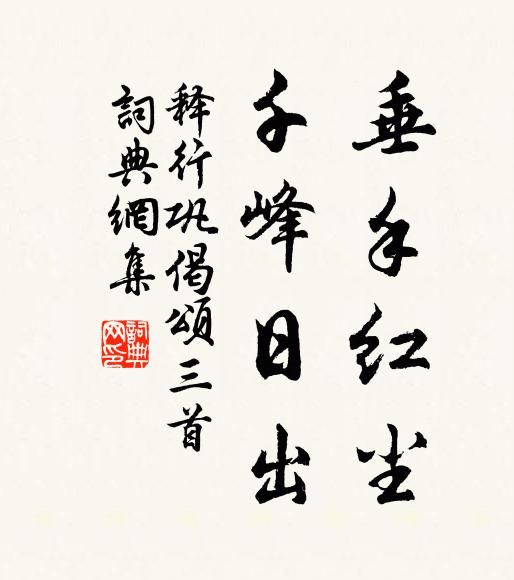 垂手红尘
千峰日出
释行巩偈頌三首
詞典網集
詞典
网印